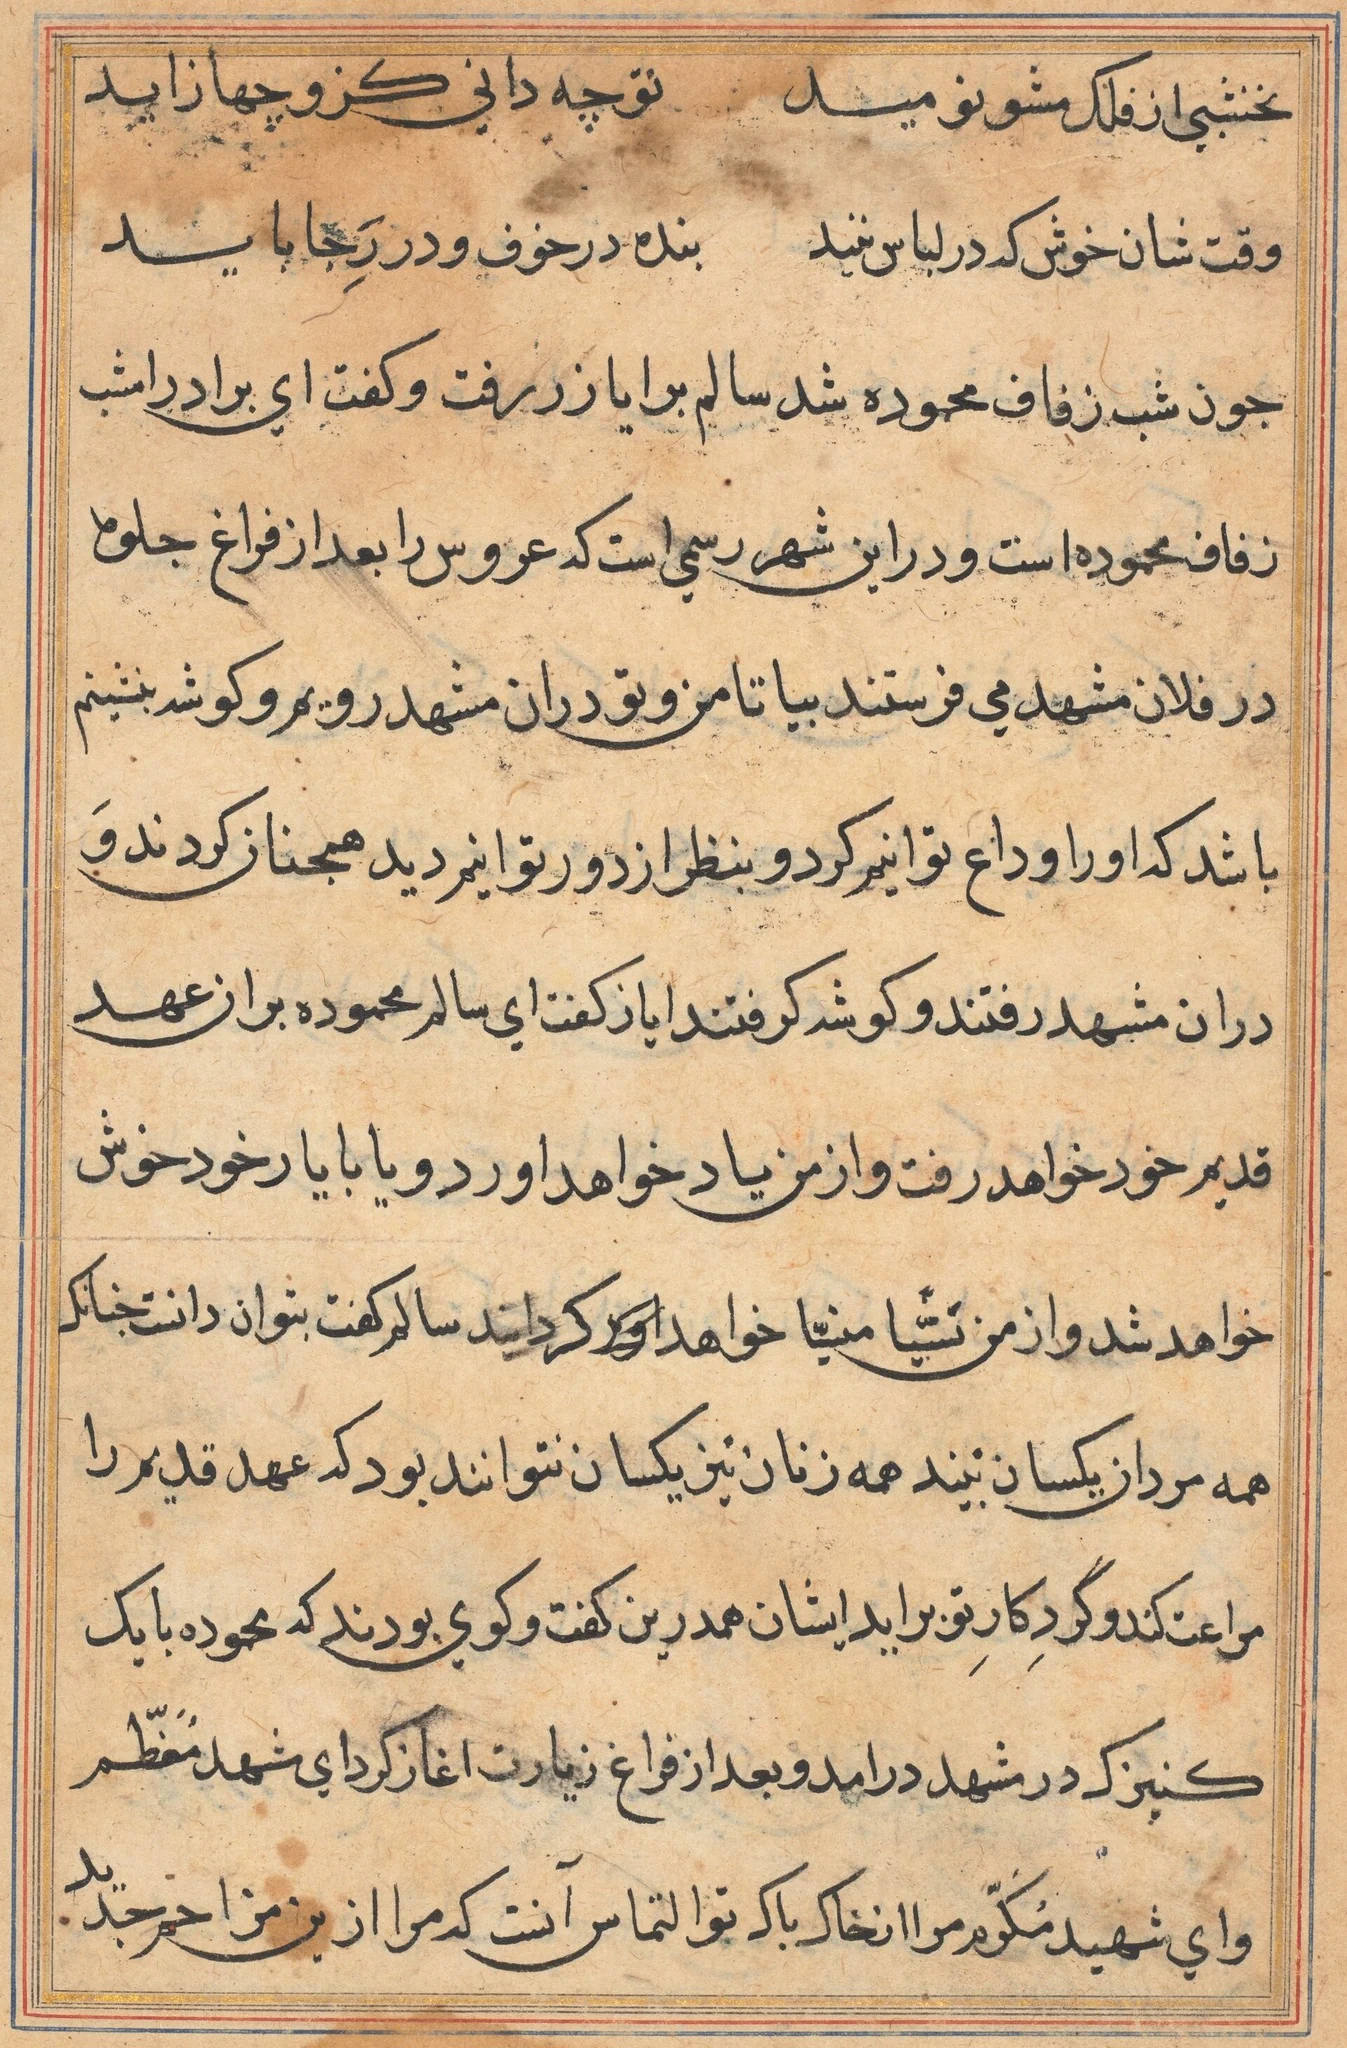 نخشبی از فلک مشو نومید تو چه دانی کزو چها زاید
وقت شان خوش که در لباس نیند بنده در خوف و در رَجا باید
جون شب زفاف محموده شد سالم برایاز رفت و کفت ای برادر امشب
زفاف محموده است و در این شهر رسمی است که عروس را بعد از فراغ جلوه
در فلان مشهد می فرستند بیا تا من و تو در ان مشهد رویم و کوشه بنشینم
باشد که او را وداع توانیم کرد و بنظر از دور توانیم دید همجنان کردند وَ
در ان مشهد رفتند و کوشه کرفتند ایاز کفت ای سالم محموده بر ان عهد
قدیم خود خواهد رفت و از من یاد خواهد اورد و یا با یار خود خوش
خواهد شد و از من نَسیًّا منسیًّا خواهد کردانید سالم کفت بتوان دانست جنانک
همه مردان یکسان نیند همه زنان نیز یکسان نتوانند بود که عهد قدیم را
مراعت کند و گردِ کارِ تو براید ایشان همدرین کفت و کوی بودند که محموده با یک
کنیزک در مشهد درامد و بعد از فراغ زیارت اغاز کرد ای شهد مُعَظّم
و ای شهید مُکَرّم مرا از خاک باک تو التماس آنست که مرا ازین مزاحم جدید